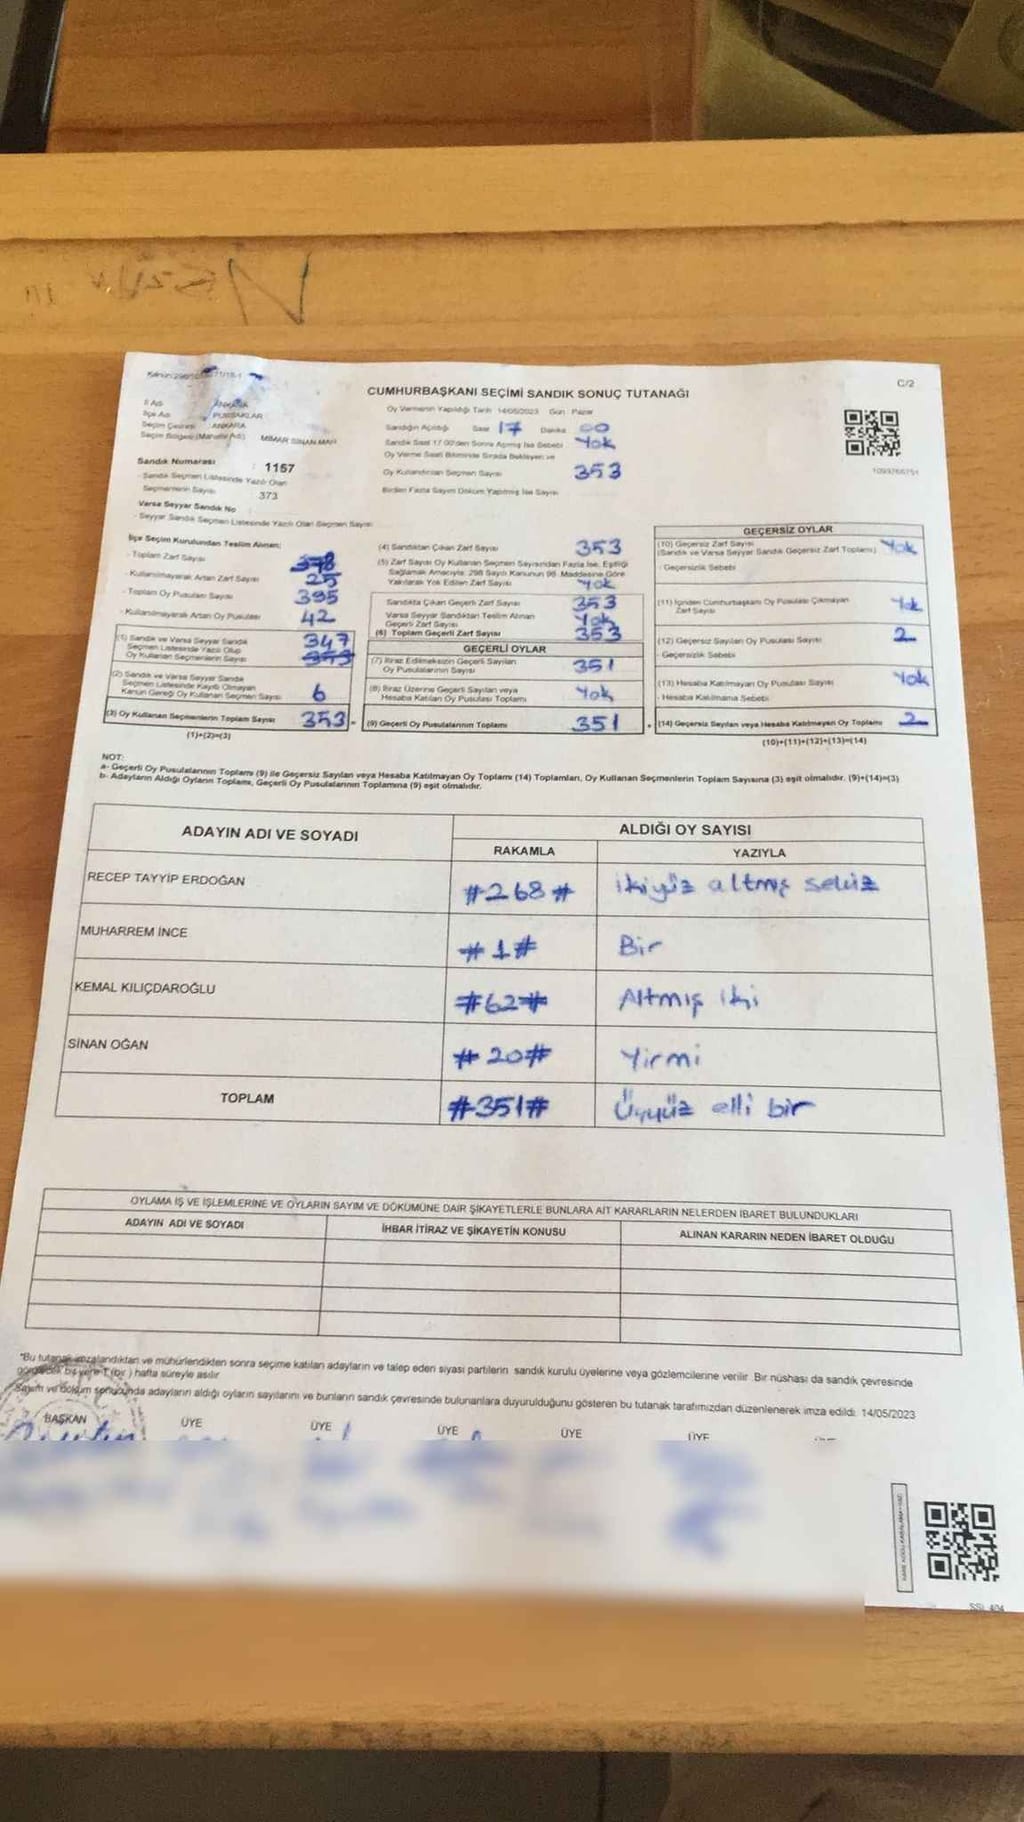 C/2
CUMHURBAŞKANI SEÇİMİ SANDIK SONUÇ TUTANAĞI
İl Adı : ANKARA
İlçe Adı : PURSAKLAR
Seçim Çevresi : ANKARA
Seçim Bölgesi (Mahalle Adı) MİMAR SİNAN MAH
Sandık Numarası : 1157
- Sandık Seçmen Listesinde Yazılı Olan
Seçmenlerin Sayısı 373
Varsa Seyyar Sandık No
- Seyyar Sandık Seçmen Listesinde Yazılı Olan Seçmen Sayısı
Oy Vermenin Yapıldığı Tarih 14/05/2023 Gün : Pazar
Sandığın Açıldığı Saat 17 Dakika 00
Sandık Saat 17.00'den Sonra Açılmış İse Sebebi Yok
Oy Verme Saati Bitiminde Sırada Bekleyen ve
Oy Kullandırılan Seçmen Sayısı 353
Birden Fazla Sayım Döküm Yapılmış İse Sayısı
1093766751
İlçe Seçim Kurulundan Teslim Alınan;
- Toplam Zarf Sayısı
- Kullanılmayarak Artan Zarf Sayısı 25
- Toplam Oy Pusulası Sayısı 395
- Kullanılmayarak Artan Oy Pusulası 42
(1) Sandık ve Varsa Seyyar Sandık
Seçmen Listesinde Yazılı Olup
Oy Kullanan Seçmenlerin Sayısı
347
353
(2) Sandık ve Varsa Seyyar Sandık
Seçmen Listesinde Kayıtlı Olmayan
Kanun Gereği Oy Kullanan Seçmen Sayısı 6
(3) Oy Kullanan Seçmenlerin Toplam Sayısı 353
(1)+(2)=(3)
(4) Sandıktan Çıkan Zarf Sayısı 353
(5) Zarf Sayısı Oy Kullanan Seçmen Sayısından Fazla İse, Eşitliği
Sağlamak Amacıyla; 298 Sayılı Kanunun 98. Maddesine Göre
Yakılarak Yok Edilen Zarf Sayısı Yok
Sandıkta Çıkan Geçerli Zarf Sayısı 353
Varsa Seyyar Sandıktan Teslim Alınan
Geçerli Zarf Sayısı Yok
(6) Toplam Geçerli Zarf Sayısı 353
GEÇERLİ OYLAR
(7) İtiraz Edilmeksizin Geçerli Sayılan
Oy Pusulalarının Sayısı 351
(8) İtiraz Üzerine Geçerli Sayılan veya
Hesaba Katılan Oy Pusulası Toplamı Yok
(9) Geçerli Oy Pusulalarının Toplamı 351
GEÇERSİZ OYLAR
(10) Geçersiz Zarf Sayısı
(Sandık ve Varsa Seyyar Sandık Geçersiz Zarf Toplamı) Yok
- Geçersizlik Sebebi
(11) İçinden Cumhurbaşkanı Oy Pusulası Çıkmayan
Zarf Sayısı Yok
(12) Geçersiz Sayılan Oy Pusulası Sayısı 2
- Geçersizlik Sebebi
(13) Hesaba Katılmayan Oy Pusulası Sayısı Yok
- Hesaba Katılmama Sebebi
(14) Geçersiz Sayılan veya Hesaba Katılmayan Oy Toplamı 2
(10)+(11)+(12)+(13)=(14)
NOT:
a- Geçerli Oy Pusulalarının Toplamı (9) ile Geçersiz Sayılan veya Hesaba Katılmayan Oy Toplamı (14) Toplamları, Oy Kullanan Seçmenlerin Toplam Sayısına (3) eşit olmalıdır. (9)+(14)=(3)
b- Adayların Aldığı Oyların Toplamı, Geçerli Oy Pusulalarının Toplamına (9) eşit olmalıdır.
ADAYIN ADI VE SOYADI
ALDIĞI OY SAYISI
RAKAMLA YAZIYLA
RECEP TAYYİP ERDOĞAN #268# ikiyüz altmış sekiz
MUHARREM İNCE #1# Bir
KEMAL KILIÇDAROĞLU #62# Altmış iki
SİNAN OĞAN #20# Yirmi
TOPLAM #351# Üçyüz elli bir
OYLAMA İŞ VE İŞLEMLERİNE VE OYLARIN SAYIM VE DÖKÜMÜNE DAİR ŞİKAYETLERLE BUNLARA AİT KARARLARIN NELERDEN İBARET BULUNDUKLARI
ADAYIN ADI VE SOYADI İHBAR İTİRAZ VE ŞİKAYETİN KONUSU ALINAN KARARIN NEDEN İBARET OLDUĞU
"Bu tutanak imzalandıktan ve mühürlendikten sonra seçime katılan adayların ve talep eden siyasi partilerin sandık kurulu üyelerine veya gözlemcilerine verilir. Bir nüshası da sandık çevresinde
görülecek bir yere 1 (bir) hafta süreyle asılır
Sayım ve döküm sonucunda adayların aldığı oyların sayılarını ve bunların sandık çevresinde bulunanlara duyurulduğunu gösteren bu tutanak tarafımızdan düzenlenerek imza edildi. 14/05/2023
BAŞKAN ÜYE ÜYE ÜYE ÜYE ÜYE